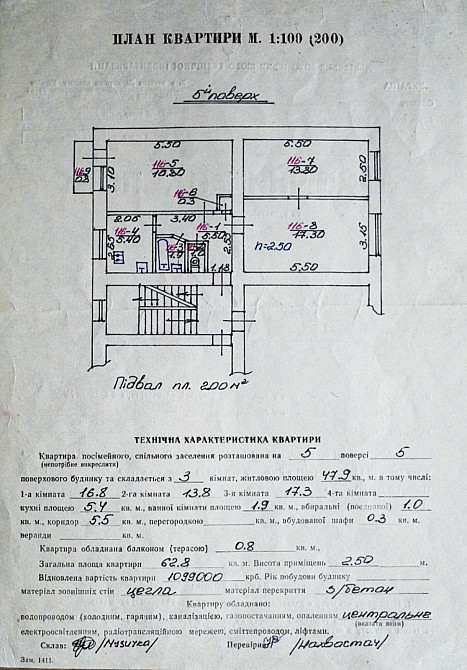 ПЛАН КВАРТИРИ М. 1:100 (200)
5й поверх
5.50
5.50
116-5
116-7
13.80
2.50
116-9
0.8
3.10
116-6
0.3
2.05
3.40
116-1
5.50
116-8
17.30
116-4
5.40
2.85
1.9
1.0
h=2.50
3.15
1.18
5.50
Підвал пл. 2.00 м²
ТЕХНІЧНА ХАРАКТЕРИСТИКА КВАРТИРИ
Квартира посімейного, спільного заселення розташована на 5 поверсі 5
(непотрібне викреслити)
поверхового будинку та складається з 3 кімнат, житловою площею 47.9 кв., м. в тому числі:
1-а кімната 16.8 2-га кімната 13.8 3-я кімната 17.3 4-та кімната
кухні площею 5.4 кв. м., ванної кімнати площею 1.9 кв. м., вбиральні (поєднаної) 1.0
кв. м., коридор 5.5 кв. м., перегородкою кв. м., вбудованої шафи 0.3 кв. м.
веранди кв. м.
Квартира обладнана балконом (терасою) 0.8 кв. м.,
Загальна площа квартири 62.8 кв. м. Висота приміщень 2.50 м.
Відновлена вартість квартири 1099000 крб. Рік побудови будинку
матеріал зовнішніх стін цегла матеріал перекриття з/бетон
Квартиру обладнано:
водопроводом (холодним, гарячим), каналізацією, газопостачанням, опаленням центральне
(вказати який)
електроосвітленням, радіотрансляційною мережею, сміттепроводом, ліфтами.
Склав: Перевірив:
Зам. 1411.